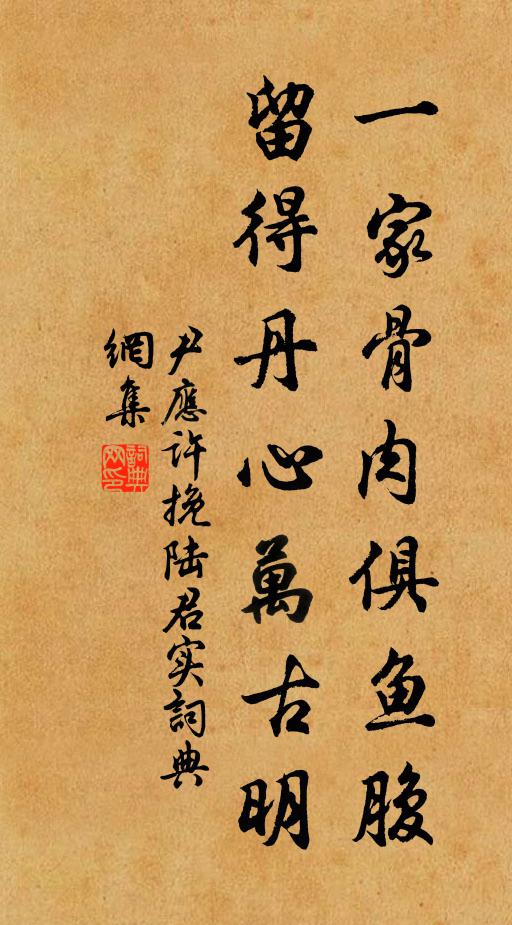 一家骨肉俱鱼腹
留得丹心萬古明
尹應许挽陆君实詞典
網集
詞典網印